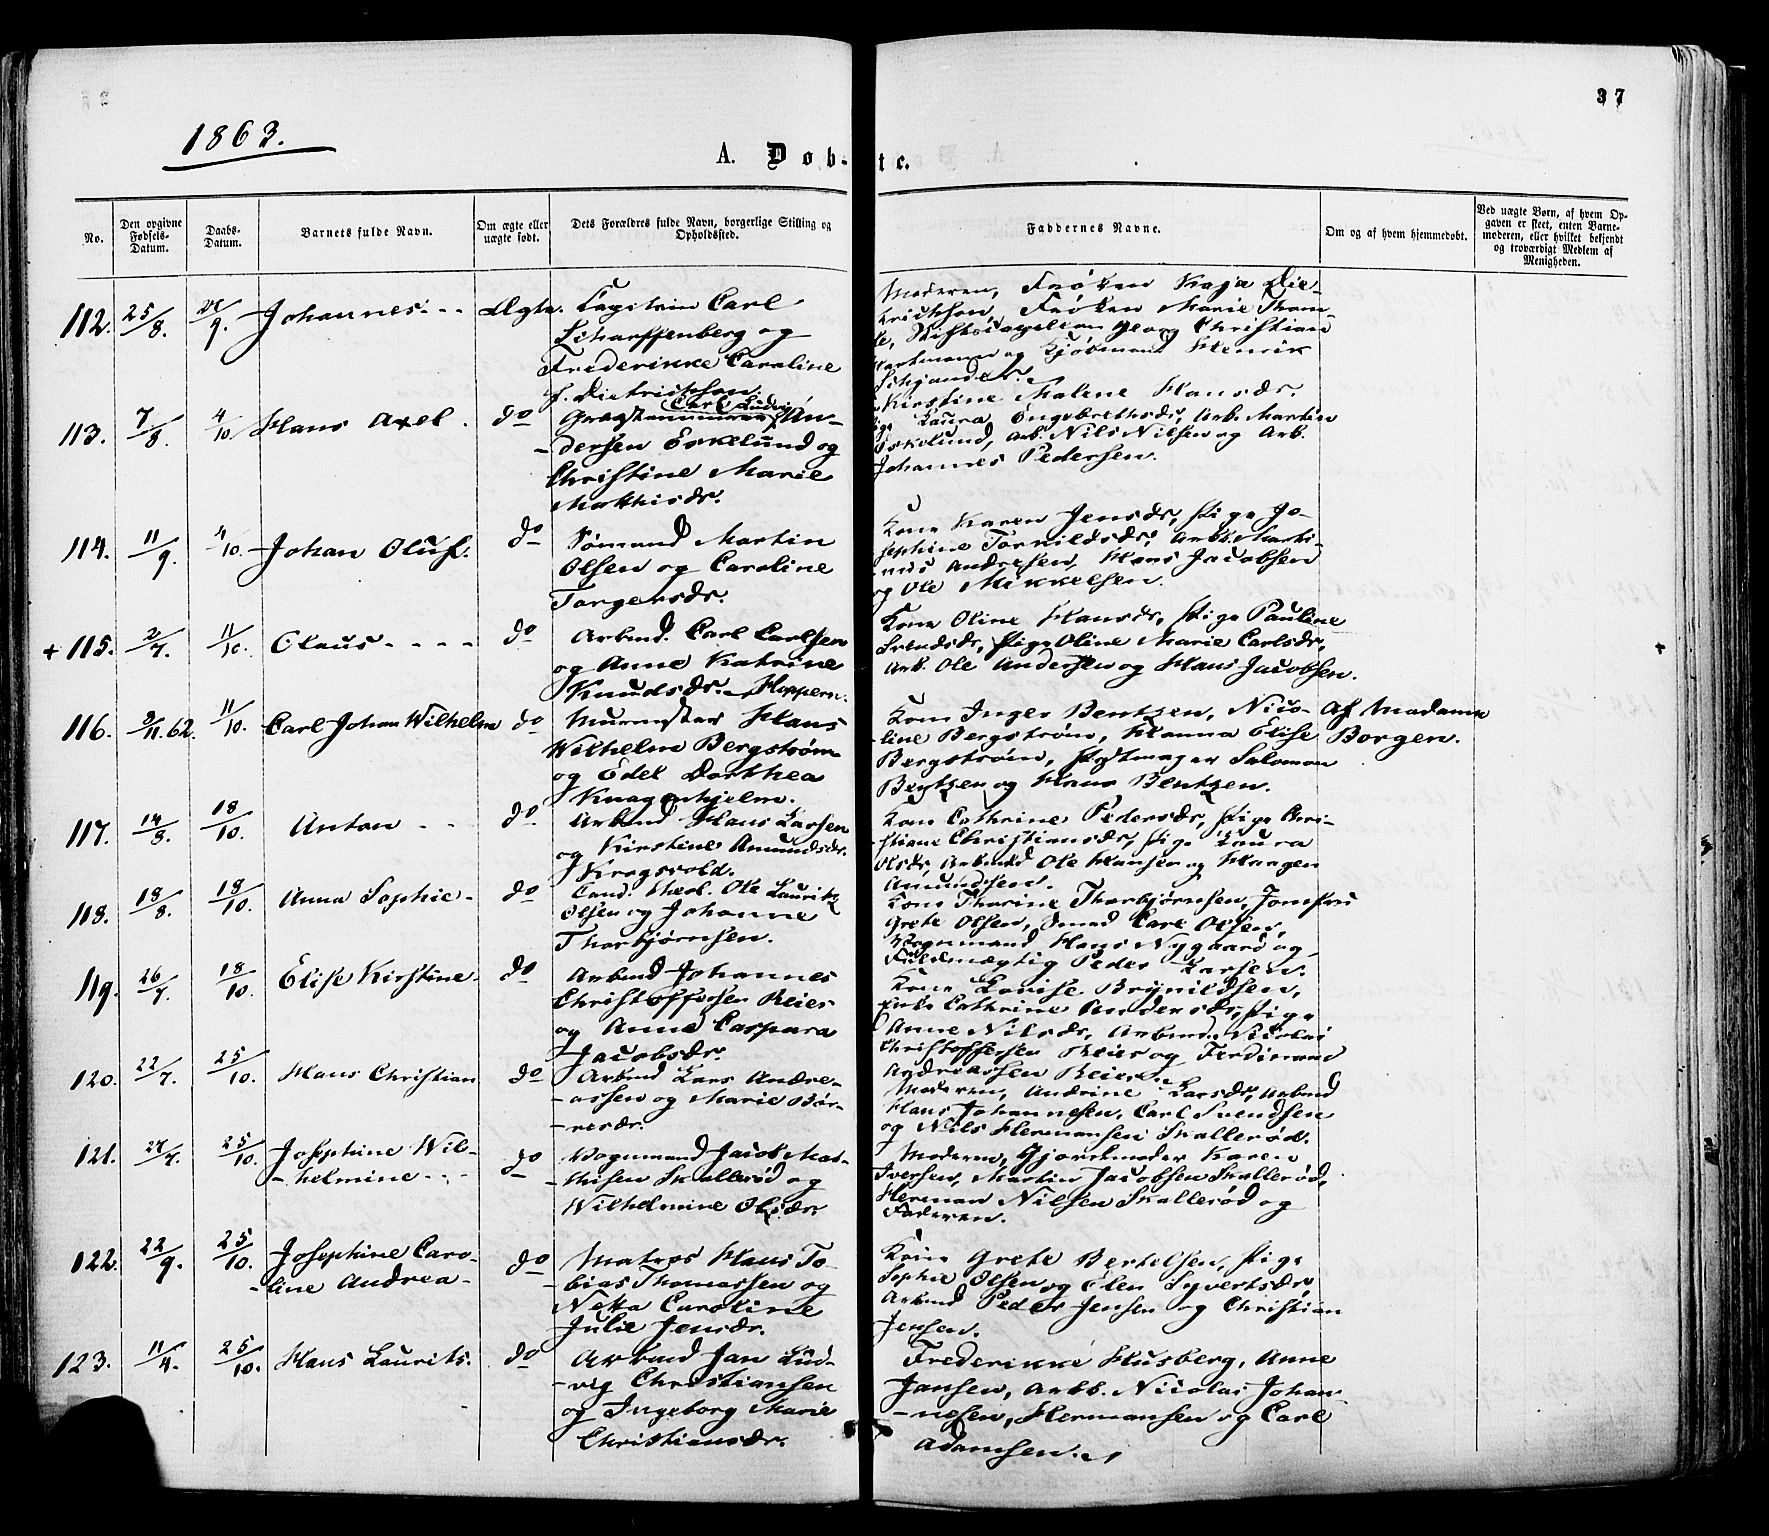 37
1863.
A. Døb-te.
No.
Den opgivne Fødsels-Datum.
Daabs-Datum.
Barnets fulde Navn.
Om ægte eller uægte født.
Dets Forældres fulde Navn, borgerlige Stilling og Opholdssted.
Faddernes Navne.
Om og af hvem hjemmedøbt.
Ved uægte Børn, af hvem Opgaven er skeet, enten Barnemoderen, eller hvilket bekjendt og troværdigt Medlem af Menigheden.
112. 25/8. /9. Johannes - - - Ægte.
Capitain Carl
Scharffenberg og
Frederikke Caroline
f. Dietrichson.
Moderen, Frøken Kaja Die-
trichson, Frøken Marie Thom-
Christian
og Kjøbmand Henrik
113. 7/8. 4/10 Hans Axel. do
Carl Ludvig An-
dersen Eskelund og
Christine Marie
Mathisdr.
Kirstine Malene Hansdr.
Laura Engebrethsdr, Arb. Martin
Eskelund, Arb. Nils Nilsen og Arb.
Johannes Pedersen.
114. 11/9. 4/10. Johan Oluf. do
Sømand Martin
Olsen og Caroline
Torgersdr.
Kone Karen Jensdr, Pige Jo-
sephine Torkildsdr, Arb. Marti-
nus Andresen, Hans Jacobsen
og Ole Mikkelsen.
+ 115. 2/7. 11/10. Claus - - - - do
Arbmd. Carl Carlsen
og Anne Katrine
Knudsdr. Hoppern.
Kone Oline Hansdr, Pige Pauline
Svendsdr, Pige Oline Marie Carlsdr,
Arb. Ole Andersen og Hans Jacobsen.
+
116. 3/11.62. 11/10. Carl Johan Wilhelm do
Murmester Hans
Wilhelm Bergstrøm
og Edel Dorthea
Knagenhjelm.
Kone Inger Bentzen, Nico-
line Bergstrøm, Hanna Elise
Bergstrøm, Salomon
Bentzen og Hans Bentzen.
Af Madame
Borgen.
117. 14/8. 18/10. Anton - - do
Arbmd Hans Larsen
og Kirstine Amundsdr.
Krogsvold.
Kone Cathrine Pedersdr, Pige Chri-
stiane Christiansdr, Pige Laura
Olsdr, Arbmd Ole Hansen og Haagen
Amundsen.
118. 18/8. 18/10. Anna Sophie - do
Cand. theol. Ole Lauritz
Olsen og Johanne
Thorbjørnsen.
Kone Thorine Thorbjørnsen, Jomfru
Grete Olsen, Smed Carl Olsen,
Vognmand Hans Nygaard og
Fuldmægtig Peder Larsen.
119. 26/7. 18/10. Elise Kirstine - do
Arbmd Johannes
Christoffersen Reier
og Anne Caspara
Jacobsdr.
Kone Lovise Brynildsen,
Enke Cathrine Andersdr, Pige
Anne Nilsdr, Arbmd. Nicolai
Christoffersen Reier og Ferdinand
Andreassen Reier.
120. 22/7. 25/10. Hans Christian do
Arbmd Lars Andre-
-assen og Marie Bør-
-resdr.
Moderen, Andrine Larsdr, Arbmd
Hans Johannesen, Carl Svendsen
og Nils Hermansen Skallerød.
121. 27/7. 25/10. Josephine Wil-
-helmine - - - do
Vognmand Jacob Mat-
-hisen Skallerød og
Wilhelmine Olsdr.
Moderen, Gjordemoder Karen
Iversen, Martin Jacobsen Skallerød,
Herman Nilsen Skallerød og
Faderen.
122. 22/9. 25/10. Josephine Caro-
-line Andrea - do
Matros Hans To-
bias Thomassen og
Netta Caroline
Julie Jensdr.
Kone Grete Bertelsen, Pige
Sophie Olsen og Elen Syvertsdr,
Arbmd Peder Jensen og Christian
Jensen.
123. 11/4. 25/10. Hans Laurits. do
Arbmd Jan Lud-
-vig Christiansen
og Ingeborg Marie
Christiansdr.
Frederikke Husberg, Anne
Jansen, Arbb. Nicolai Johan-
-nesen, Hermansen og Carl
Adamsen.